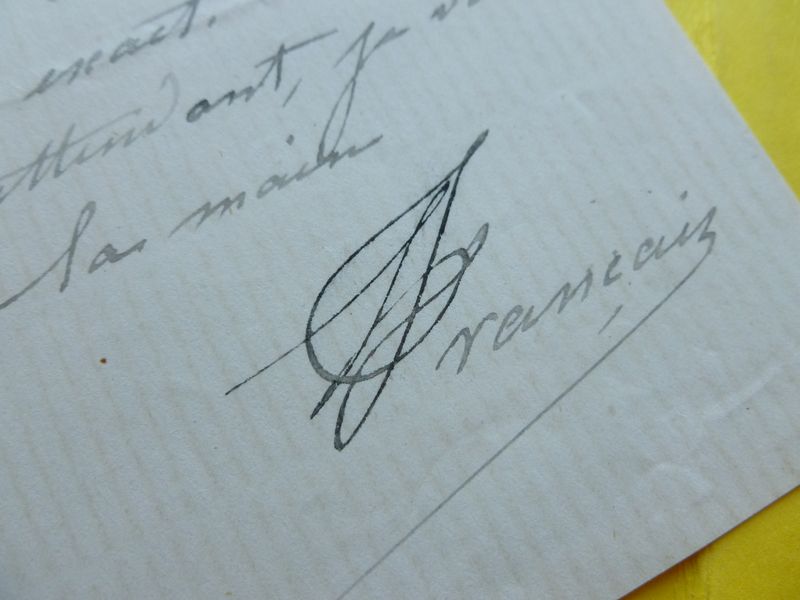 exact.
attendant, je v
la main
Français